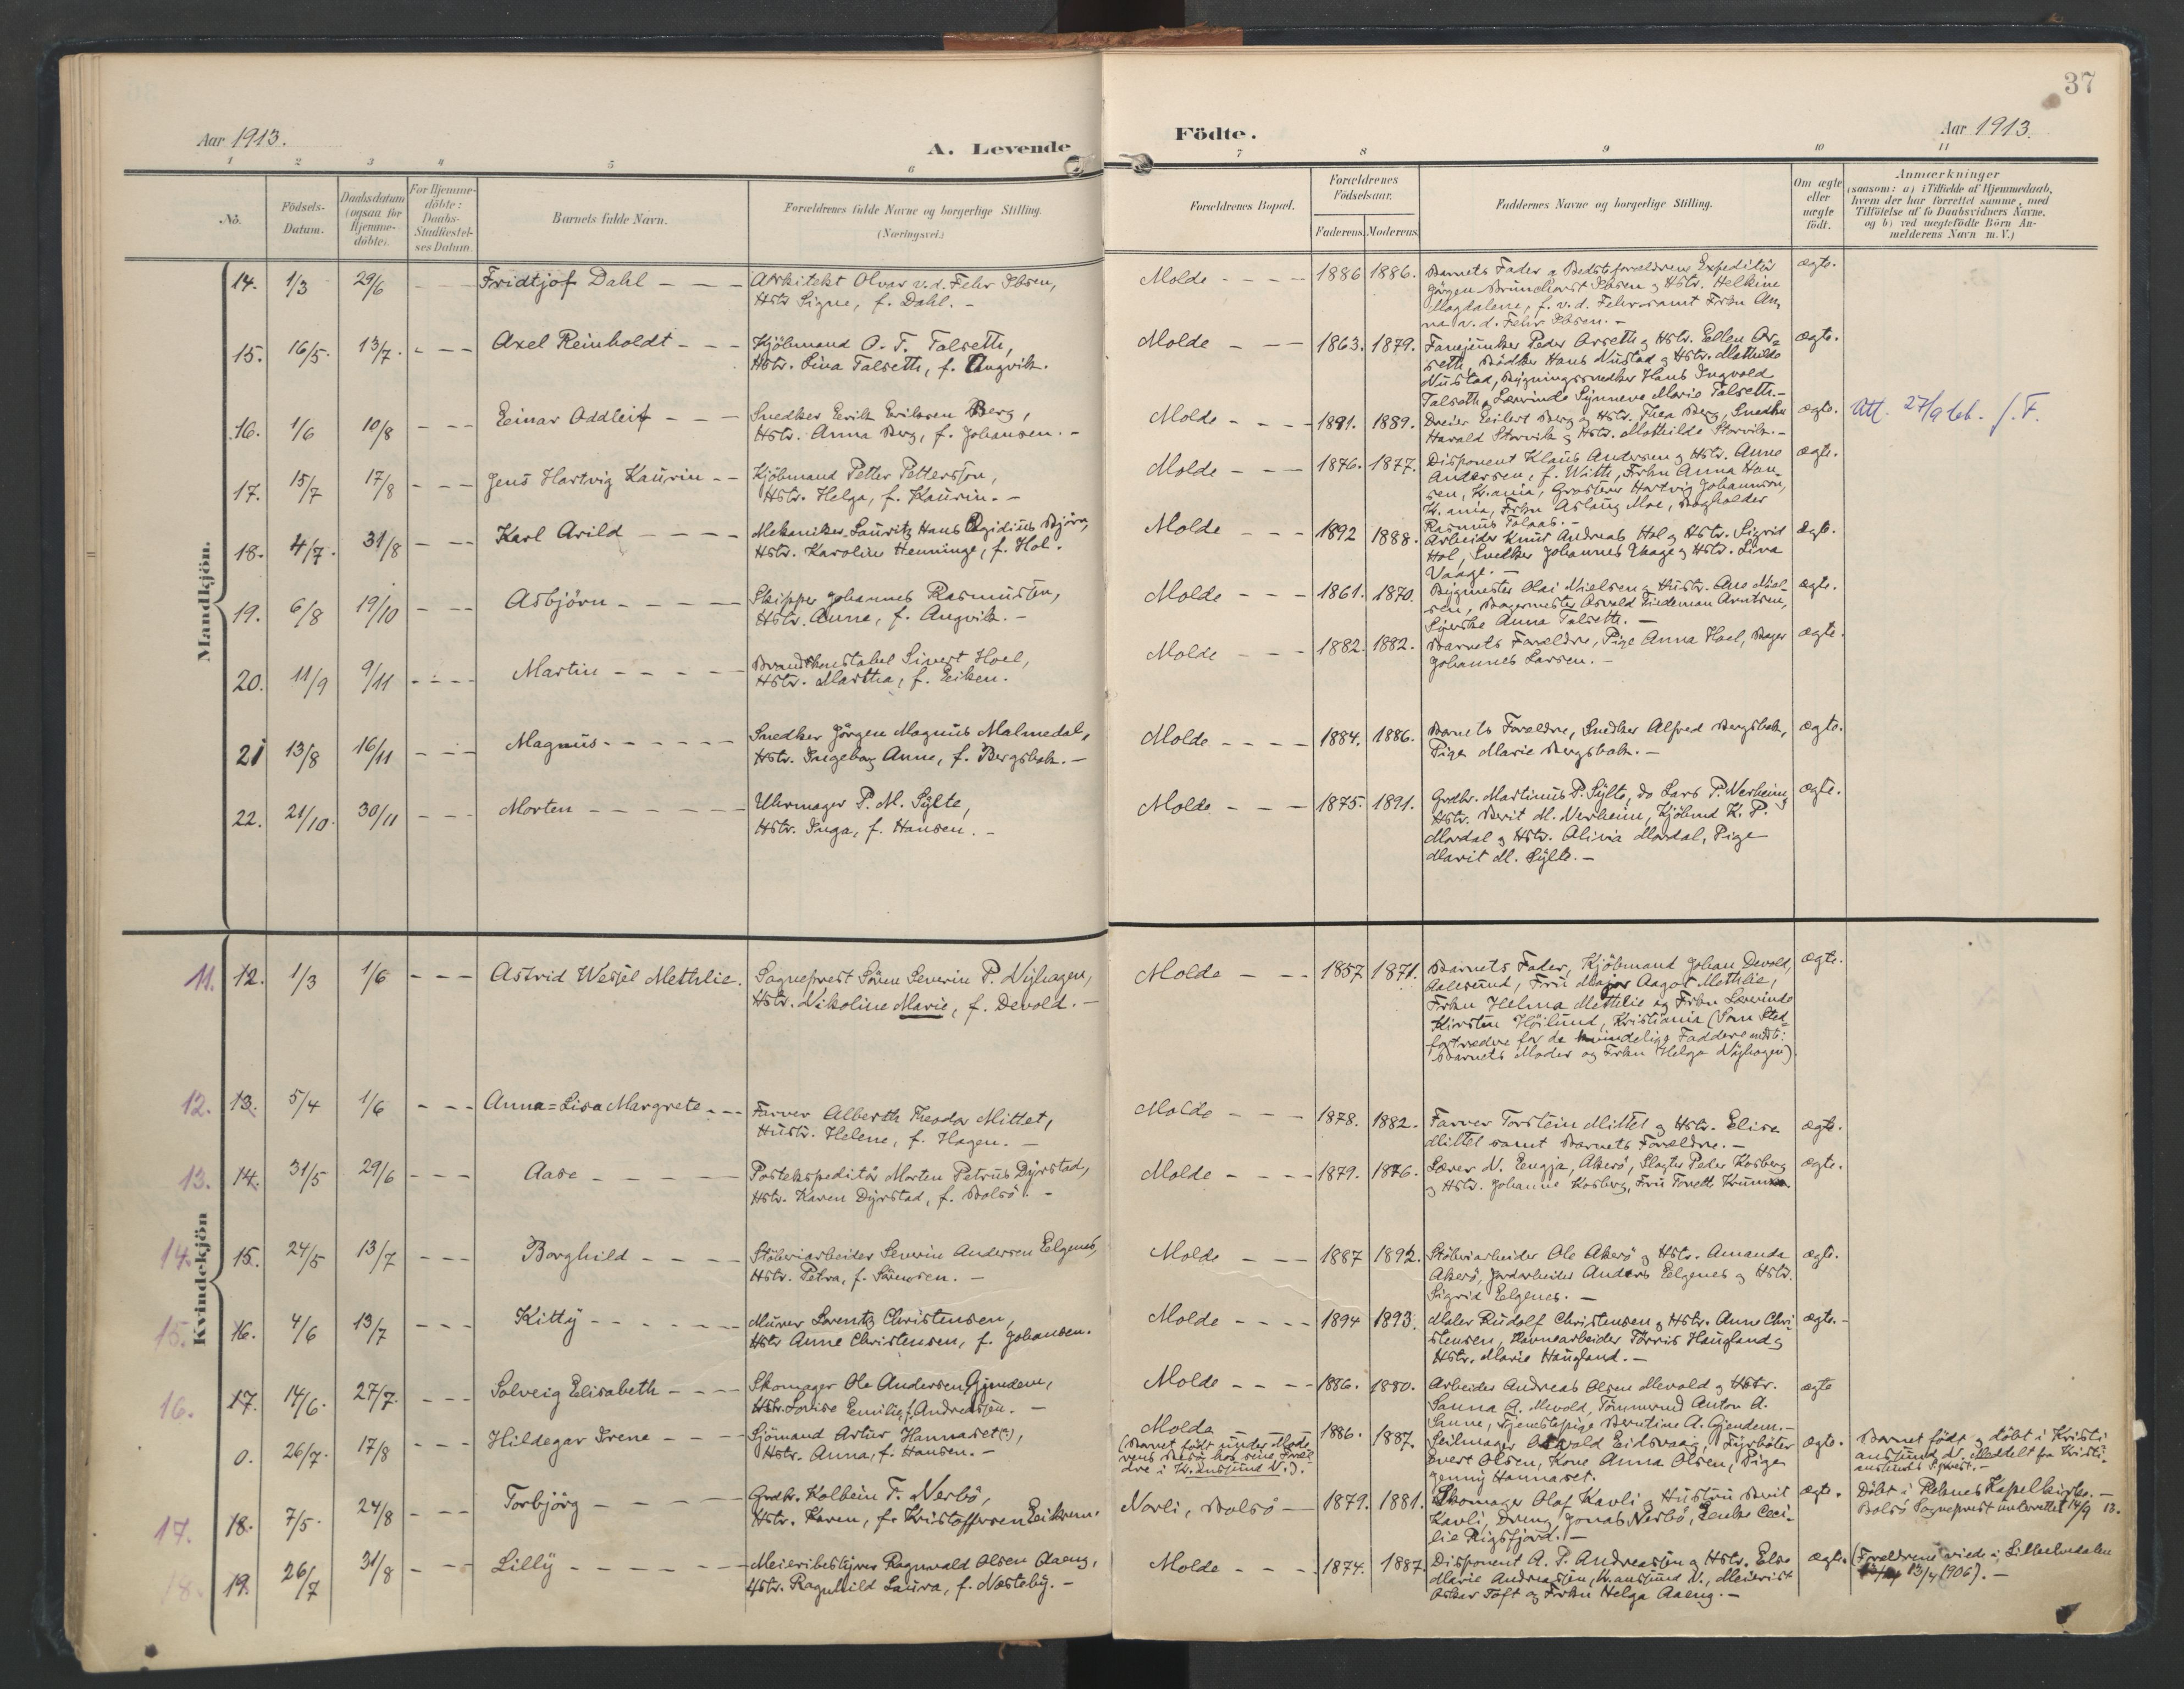 37
Aar 1913.
A. Levende
Födte.
Aar 1913.
1 2 3 4 5 6 7 8 9 10 11
No.
Födsels-
Datum.
Daabsdatum
(ogsaa for
Hjemme-
döbte).
For Hjemme-
döbte:
Daabs-
Stadfæstel-
ses Datum.
Barnets fulde Navn.
Forældrenes fulde Navne og borgerlige Stilling.
(Næringsvei.)
Forældrenes Bopæl.
Forældrenes
Födselsaar.
Faderens. Moderens.
Faddernes Navne og borgerlige Stilling.
Om ægte
eller
uægte
födt.
Anmærkninger
(saasom: a) i Tilfælde af Hjemmedaab,
hvem der har forrettet samme, med
Tilföielse af to Daabsvidners Navne,
og b) ved uægtefödte Börn An-
melderens Navn m. V.)
Mandkjön.
14. 1/3 29/6 - - - Fridtjof Dahl - - -
Arkitekt Olvar v.d. Fehr Ibsen,
Hstr. Signe, f. Dahl. -
Molde - - - - 1886 1886.
Barnets Fader og Bedsteforældrene Expeditör
Jörgen Brünchorst Ibsen og Hstr. Helkine
Magdalene, f. v. d. Fehr samt Frkn An-
na v. d. Fehr Ibsen. -
ægte.
15. 16/5. 13/7. - - - Axel Reinholdt - - -
Kjöbmand O. T. Talseth,
Hstr. Lina Talseth, f. Angvik.
Molde - - - 1863. 1879.
Fanejunker Peder Arseth og Hstr. Ellen Ar-
seth, Bödker Hans Nustad og Hstr. Mathilde
Nustad, Bygningssnedker Hans Ingvold
Talseth, Lærerinde Synneve Marie Talseth. -
ægte.
16. 1/6 10/8 - - - Einar Oddleif - - -
Snedker Eerik Eriksen Berg,
Hstr. Anna Berg, f. Johansen. -
Molde - - - - 1891. 1889.
Dreier Eilert Berg og Hstr. Thea Berg, Snedker
Harald Storvik og Hstr. Mathilde Storvik. -
ægte.
Att. 27/9 16. J. F.
17. 15/7 17/8 - - - Jens Hartvig Kaurin - -
Kjöbmand Petter Petterssön,
Hstr. Helga, f. Kaurin. -
Molde - - - 1876. 1877.
Disponent Klaus Andersen og Hstr. Anne
Andersen, f. Witth, Frkn Anna Han-
sen, K.ania, Grosserer Hartvig Johannson,
K. ania, Frkn Aslaug Moe, Bogholder
Rasmus Tolaas. -
ægte.
18. 4/7. 31/8 - - - Karl Arild - - - -
Mekaniker Lauritz Hans Egidius Björn,
Hstr. Karoline Henninge, f. Hol.
Molde - - - 1892 1888.
Arbeider Knut Andreas Hol og Hstr. Sigrid
Hol, Snedker Johannes Vaage og Hstr. Lina
Vaage. -
ægte.
19. 6/8 19/10 - - - Asbjörn - - - - -
Skipper Johannes Rasmussen,
Hstr. Anna, f. Angvik. -
Molde - - - 1861. 1870.
Bygmester Olai Nielsen og Hustr. Ane Niel-
sen, Bagermester Osvald Tiedeman Arntsen,
Syerske Anna Talseth. -
ægte.
20. 11/9 9/11 - - - - Martin - - - -
Brandkonstabel Sivert Hoel,
Hstr. Martha, f. Eiken.
Molde - - - 1882. 1882.
Barnets Forældre, Pige Anna Hoel, Bager
Johannes Larsen. -
ægte.
21 13/8 16/11 - - - Magnus - - - - - -
Snedker Jörgen Magnus Malmedal,
Hstr. Ingeborg Anne, f. Bergsbak. -
Molde - - - - 1884. 1886.
Barnets Forældre, Snedker Alfred Bergsbak,
Pige Marie Bergsbak. -
ægte.
22. 21/10. 30/11 - - - Morten - - - - - -
Uhrmager P. M. Sylte,
Hstr. Inga, f. Hansen. -
Molde - - - 1875. 1891.
Grdbr. Martinus P. Sylte, do Lars P. Nerheim,
Hstr. Berit M. Nerheim, Kjöbmd K. P.
Mordal og Hstr. Olivia Mordal, Pige
Marit M. Sylte. -
ægte.
Kvindekjön
11. 12. 1/3 1/6 - - - Astrid Wessel Methlie.
Sogneprest Sören Severin P. Nyhagen,
Hstr. Nikoline Marie, f. Devold. -
Molde - - 1857. 1871.
Barnets Fader, Kjöbmand Johan Devold,
Aalesund, Fru Major Aagot Methlie,
Frkn Helma Methlie og Frkn Lærerinde
Kirsten Höilund, Kristiania (Som Sted-
fortrædere for de kvindelige Faddere mödte:
Barnets Moder og Frkn Helga Nyhagen).
ægte.
12. 13. 5/4 1/6 - - - Anna=Lisa Margrete - - -
Farver Alberth Theodor Mittet,
Hustr. Helene, f. Hagen. -
Molde - - - 1878. 1882.
Farver Torstein Mittet og Hstr. Elise
Mittet samt Barnets Forældre. -
ægte.
13. 14. 31/5 29/6 - - - Aase - - - - -
Postekspeditör Morten Petrus Dyrstad,
Hstr. Karen Dyrstad, f. Bolsö. -
Molde - - - - 1879. 1876.
Lærer N. Eengja, Akerö, Slagter Peder Kosberg
og Hstr. Johanne Kosberg, Fru Toreth
ægte.
14. 15. 24/5 13/7 - - - Borghild - - - -
Stöberiarbeider Severin Andersen Eelgenes,
Hstr. Petra, f. Sörensen. -
Molde - - - 1887 1892.
Stöberiarbeider Ole Akerö og Hstr. Amanda
Akerö, Jordarbeider Anders Eelgenes og Hstr.
Sigrid Eelgenes. -
ægte.
15. 16. 4/6 13/7 - - - Kitty - - - - - -
Murer Lorentz Christensen,
Hstr Anne Christensen, f. Johansen.
Molde - - - - 1894 1893.
Maler Rudolf Christensen og Hstr. Anne Chri-
stensen, Havnearbeider Torris Haugland og
Hstr. Marie Haugland. -
ægte. -
16. 17. 14/6. 27/7. - - - Solveig Elisabeth - - - -
Skomager Ole Andersen Gjendem,
Hstr. Lovise Emilie, f. Andreassen. -
Molde - - - - 1886. 1880.
Arbeider Andreas Olsen Mevold og Hstr.
Sanna A. Mevold, Tömmermd Anton A.
Sanne, Tjenestepige Berntine A. Gjendem. -
ægte
0. 26/7. 17/8 Hildegar Irene - - -
Sjömand Artur Hannaset(?),
Hstr. Anna, f. Hansen. -
Molde
(Barnet födt under Mode-
rens Besög hos sine Foræl-
dre i Kr.ansund N.).
1886. 1887.
Seilmager Oskvald Eidsvaag, Fyrböter
Evert Olsen, Kone Anna Olsen, Pige
Jenny Hannaset.
ægte.
Barnet födt og döbt i Kristi-
ansund N. Meddelt fra Kristi-
ansunds S.prest. -
17. 18. 7/5. 24/8 - - - Torbjörg - - - - -
Grdbr. Kolbein T. Nerbö,
Hstr. Karen, f. Kristoffersen Eikrem.
Norli, Bolsö - 1879. 1881.
Skomager Olaf Kavli og Hustru Berit
Kavli, Dreng Jonas Nerbö, Enke Ceci-
lie Rigsfjord. -
ægte.
Döbt i Röbnes Kapelkirke. -
Bolsö Sogneprest underrettet 14/9 13.
18. 19. 26/7 31/8 - - - Lilly - - - - - -
Meieribestyrer Ragnvald Olsen Aaeng,
Hstr. Ragnhild Laura, f. Næsteby. -
Molde - - - 1874. 1887
Disponent A. P. Andreassen og Hstr. Else
Marie Andreassen, Kr.ansund N., Meierist
Oskar Toft og Frkn Helga Aaeng. -
ægte.
(Forældrene viede i Lilleelvedalen
13/4 1906). -